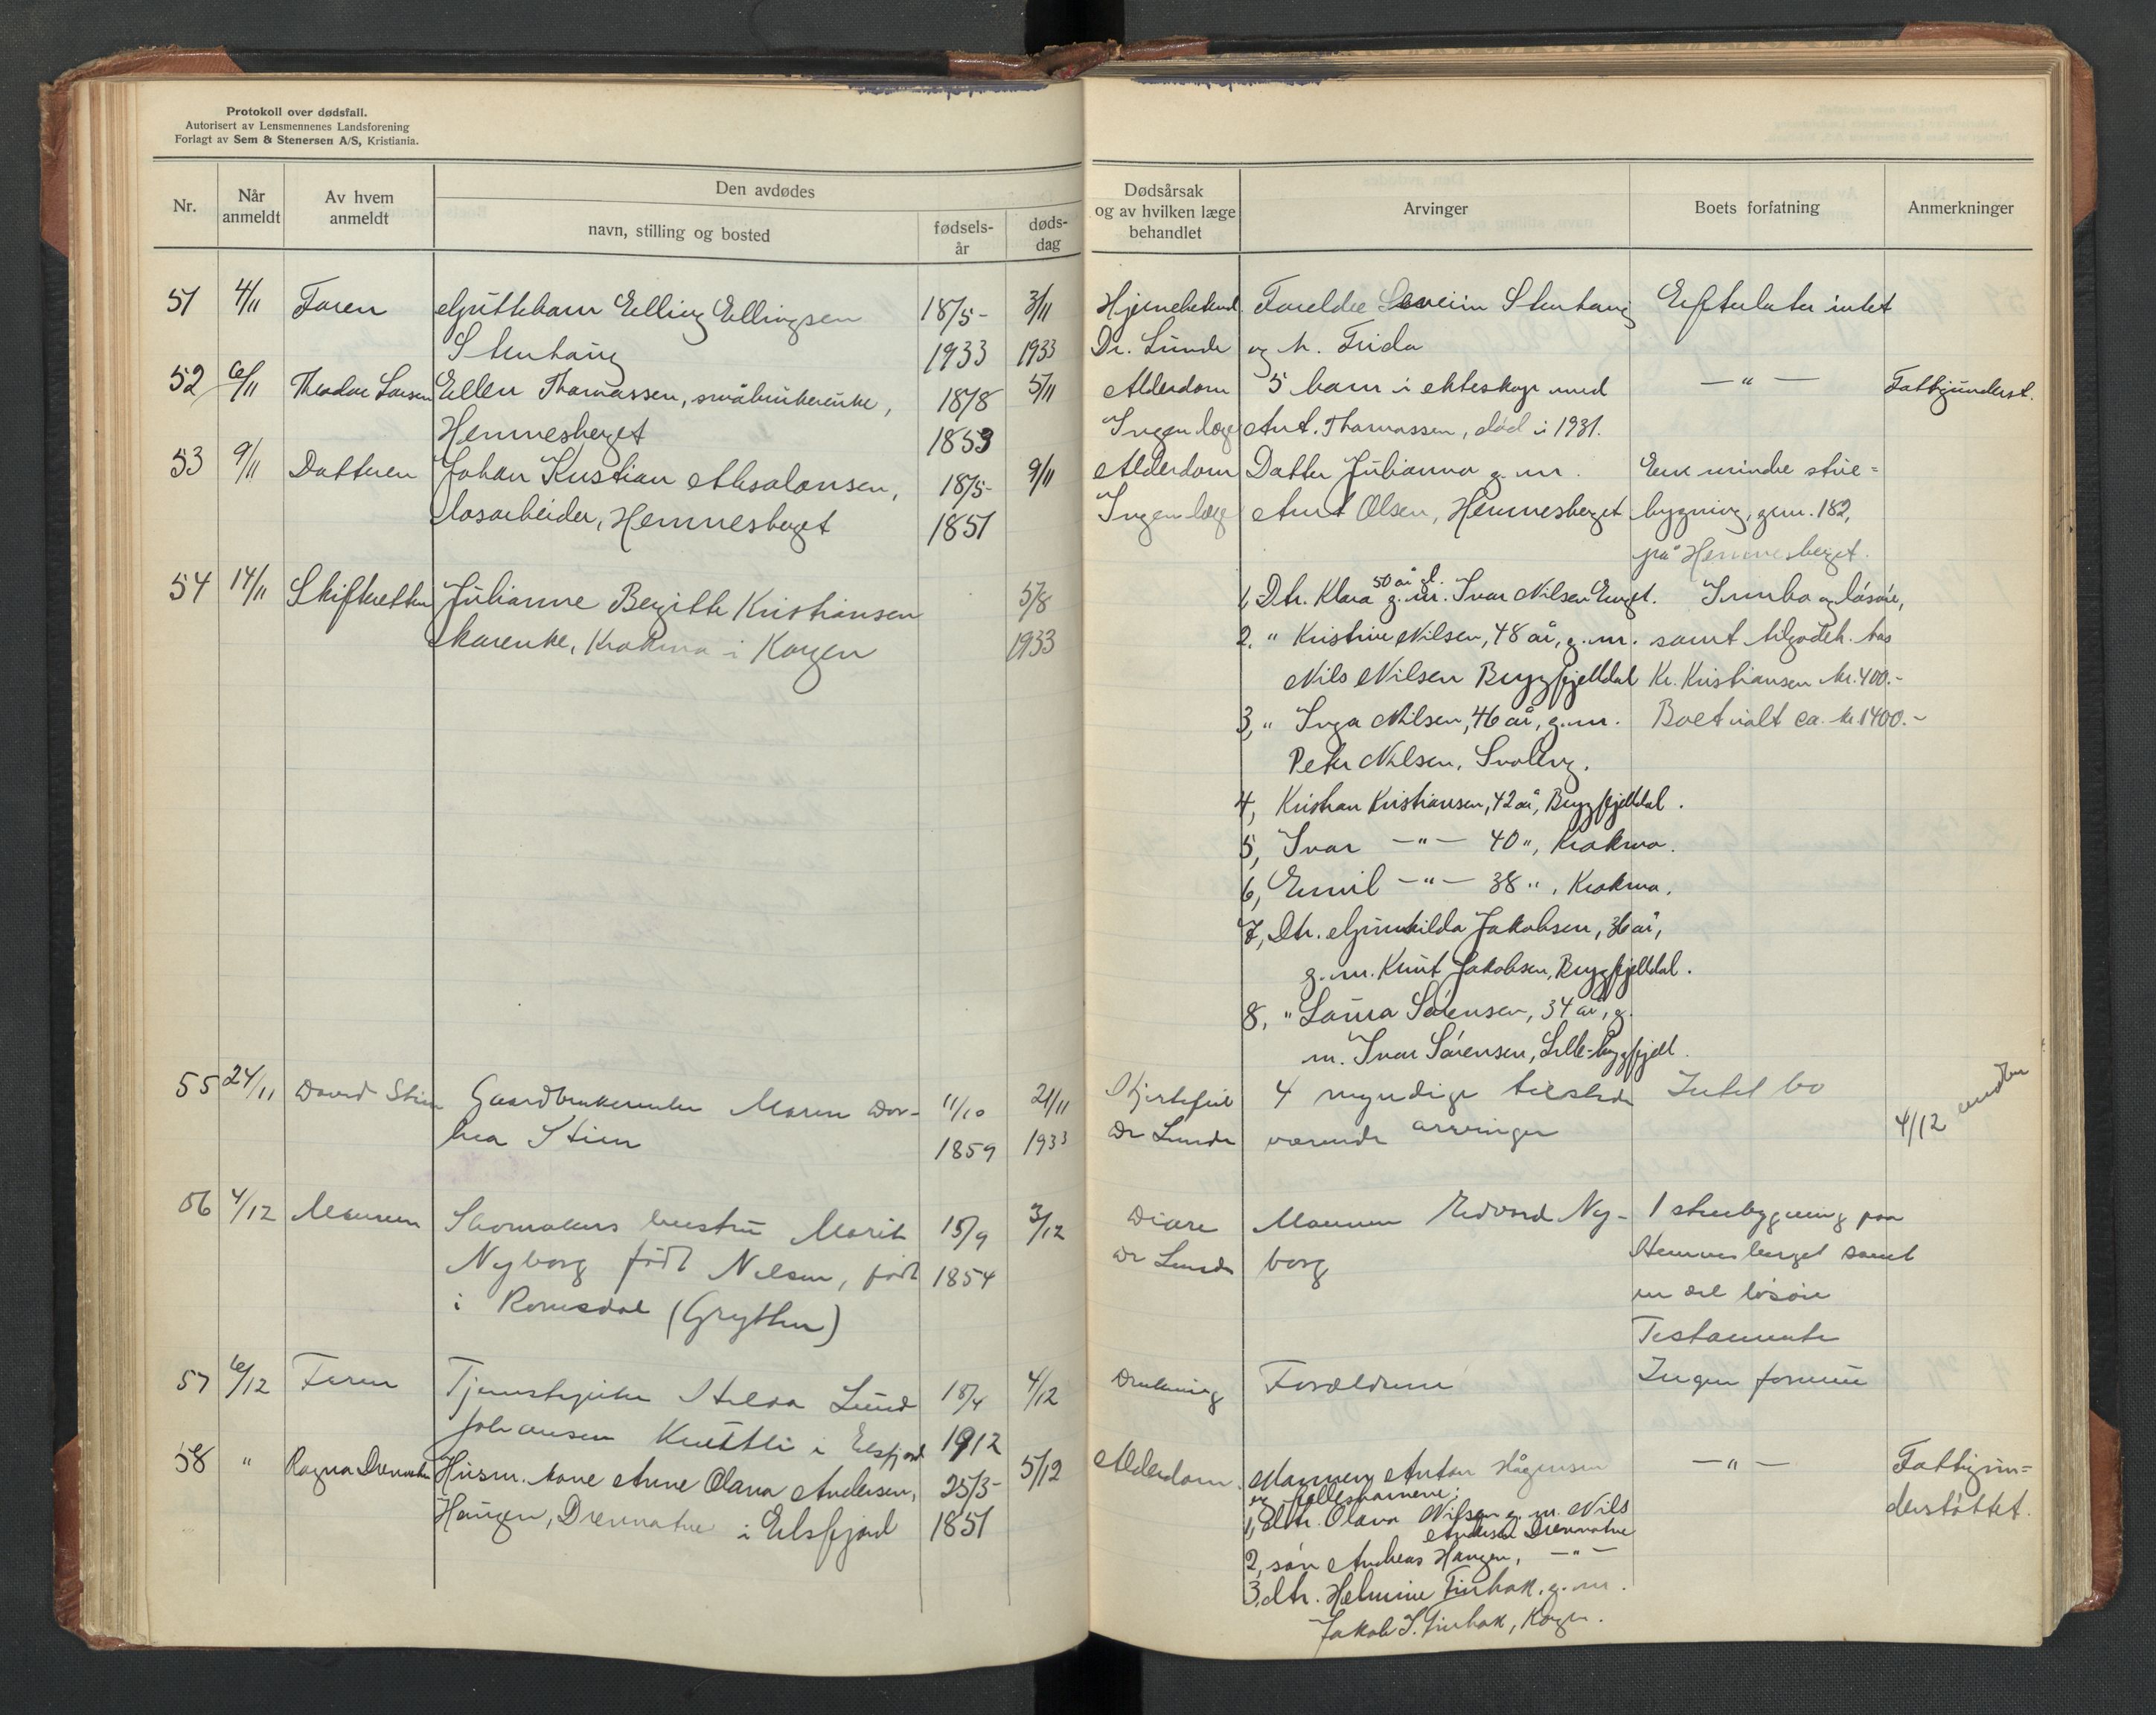 Protokoll over dødsfall.
Autorisert av Lensmennenes Landsforening
Forlagt av Sem & Stenersen A/S, Kristiania.
Nr.
Når anmeldt
Av hvem anmeldt
Den avdødes
navn, stilling og bosted
fødsels-år
døds-dag
Dødsårsak og av hvilken læge behandlet
Arvinger
Boets forfatning
Anmerkninger
51 4/11 Faren Guttebarn Elling Ellingsen 18/5- 3/11
Stenhaug 1933 1933
52 6/11 Theodor Larsen Ellen Thomassen, småbrukerenke, 18/8 5/11
Hemnesberget 1853
53 9/11 Datteren Johan Kristian Absalonsen, 18/5- 9/11
løsarbeider, Hemnesberget 1851
54 14/11 Skifteretten Julianne Bergitte Kristiansen 5/8
kårenke, Krokmo i Korgen 1933
55 24/11 David Stien Gaardbrukerenke Maren Dor- 11/10 21/11
thea Stien 1859 1933
56 4/12 Mannen Skomakers hustru Marit 15/9 3/12
Nyborg født Nilsen, født 1854
i Romsdal (Grytten)
57 6/12 Faren Tjenestepike Hilda Lund 18/4 4/12
Johansen i Elsfjord 1912
58 " Ragna Husm. kone Anne Olava Andersen, 25/3- 5/12
Haugen, i Elsfjord 1851
Foreldre Severin Stenhaug Efterlater intet
Dr. Lunde og h. Frida
Alderdom 5 barn i ekteskap med — " — Fattigunderst.
Ingen læge Ant. Thomassen, død i 1931.
Alderdom Datter Julianna g. m. Een mindre stue=
Ingen læge Arnt Olsen, Hemnesberget bygning, gnr. 182,
på Hemnesberget.
1, Dtr. Klara 50 år gl. g. m. Ivar Nilsen Enget. Innbo og løsøre,
2, " Kristine Nilsen, 48 år, g. m. samt tilgodeh. hos
Nils Nilsen Bryggfjelldal Kr. Kristiansen kr. 400.-
3, " Inga Nilsen, 46 år, g. m. Boet ialt ca. kr 1400.-
Peter Nilsen,
4, Kristian Kristiansen, 42 år, Bryggfjelldal.
5, Ivar — " — 40 ", Krokmo.
6, Emil — " — 38 ", Krokmo.
7, Dtr. Gunhilda Jakobsen, 36 år,
g. m. Knut Jakobsen, Bryggfjelldal.
8, " Laura Sørensen, 34 år, g.
m. Ivar Sørensen, Lille-bryggfjell.
Hjertefeil 4 myndige tilstede Intet bo
Dr Lunde værende arvinger 4/12
Diare Mannen Edvard Ny- 1 stuebygning paa
Dr Lunde borg Hemnesberget samt
en del løsøre
Testamente
Drukning Forældrene Ingen formue
Alderdom. Mannen Anton Hågensen — " — Fattigun=
og fellesbarnene: derstøttet.
1, dtr. Olava Nilsen g. m. Nils
Andersen
2, søn Andreas Haugen, — " —
3, dtr. Helmine Finbak, g. m.
Jakob I. Finbak, Korgen.